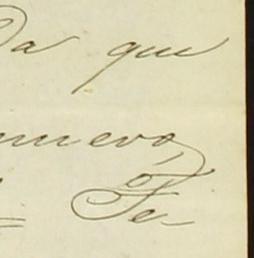 Da que
nuevo,
Fe-